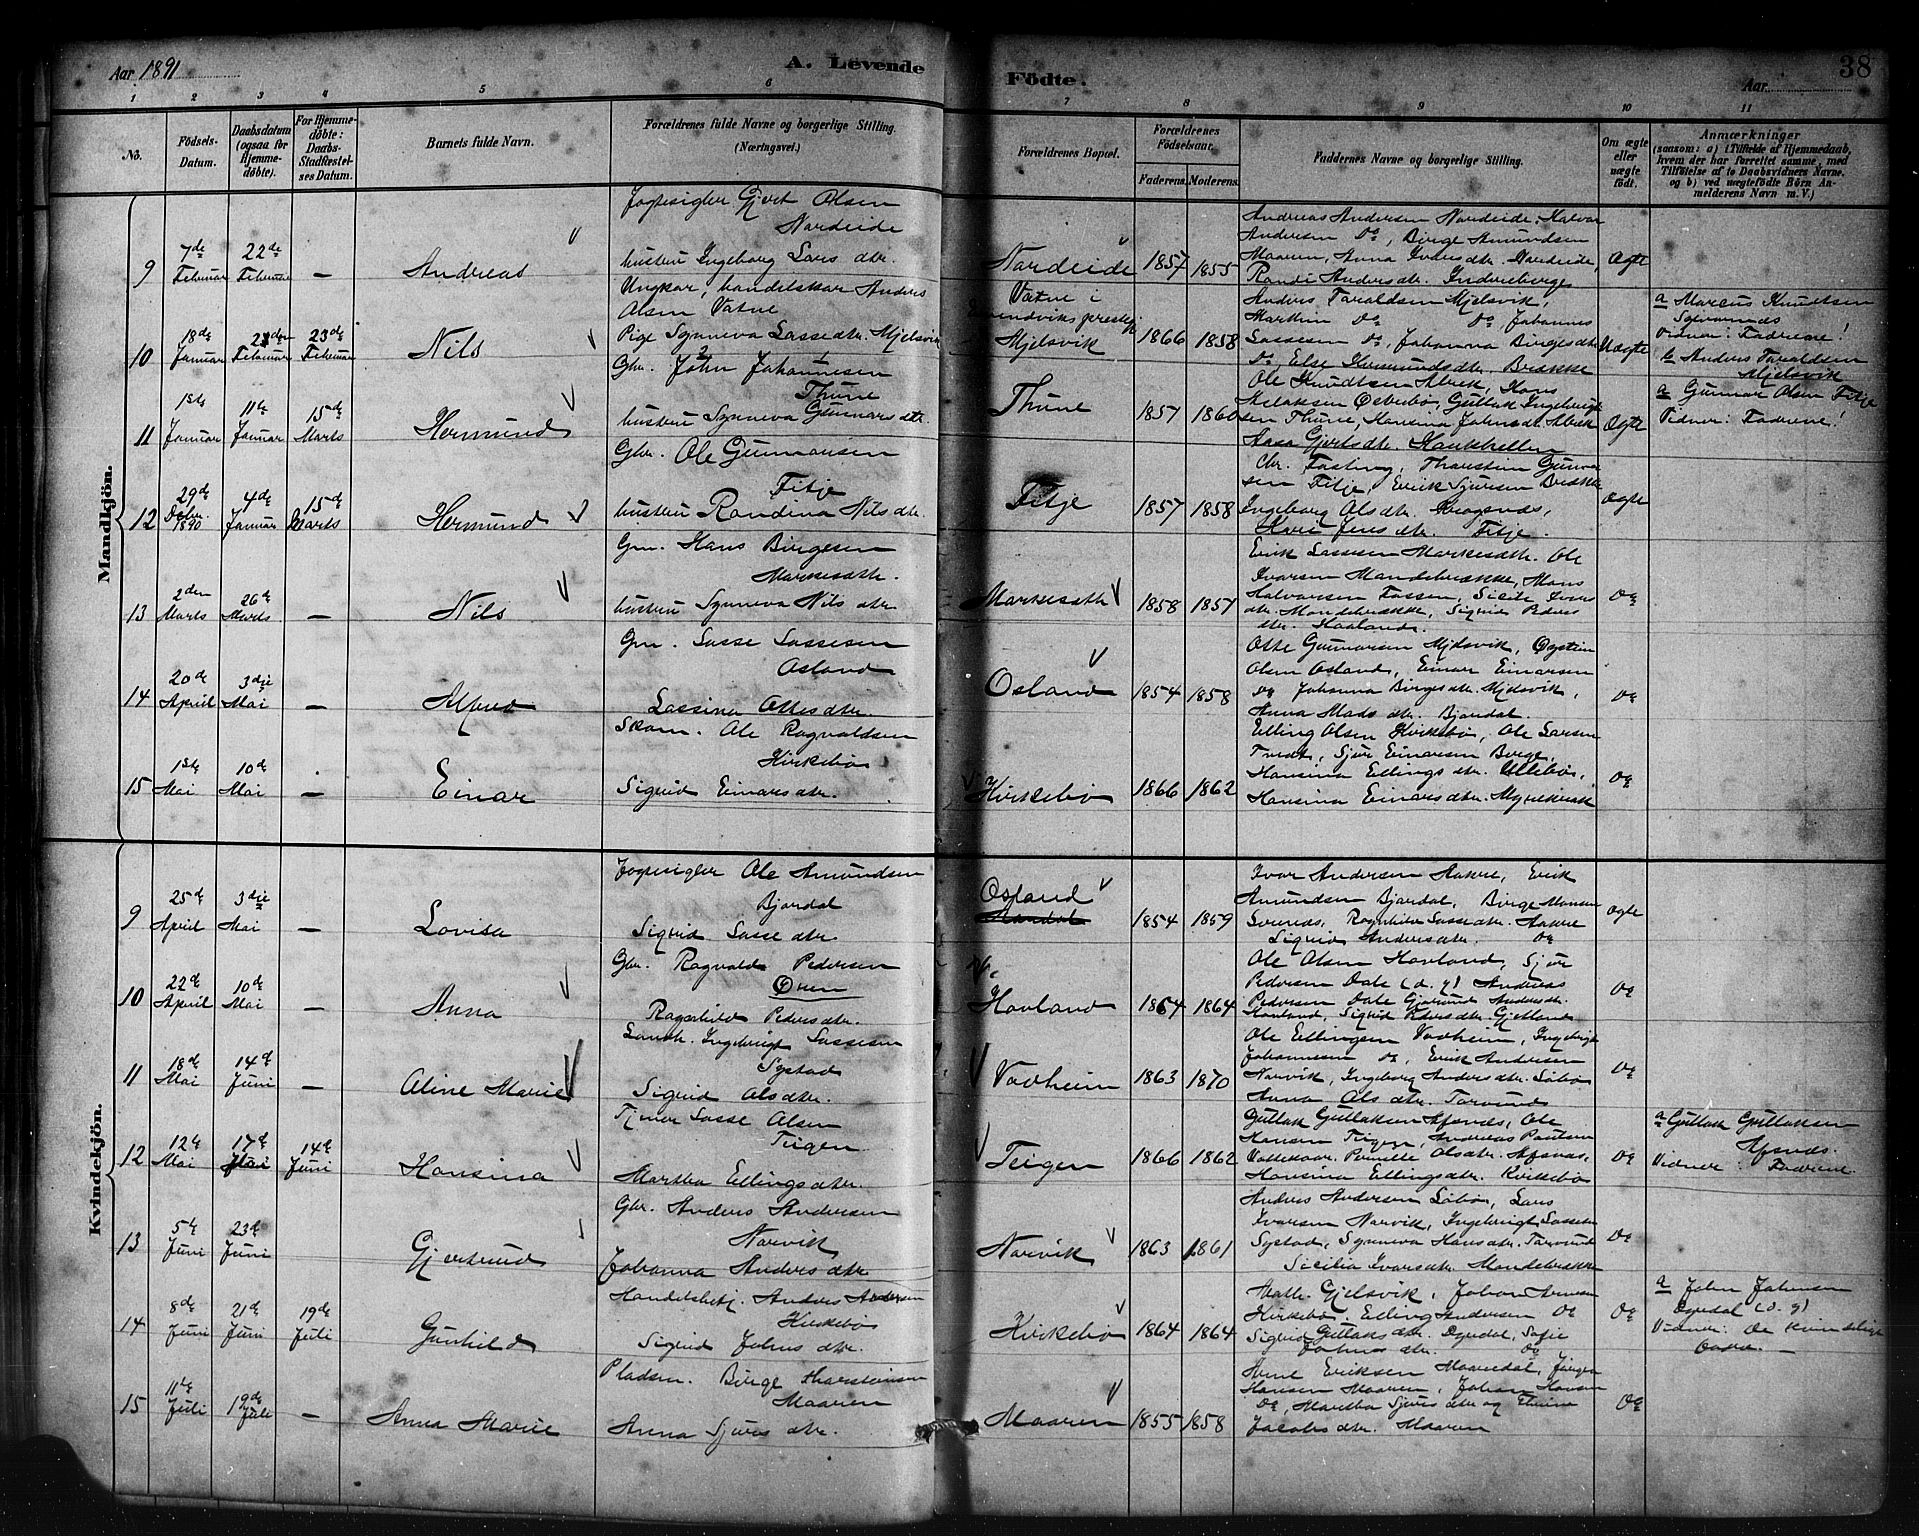 Aar 1891
A. Levende
Födte.
Aar
38
1 2 3 4 5 6 7 8 9 10 11
No.
Födsels-
Datum.
Daabsdatum
(ogsaa for
Hjemme-
døbte).
For Hjemme-
døbte:
Daabs-
Stadfæstel-
ses Datum.
Barnets fulde Navn.
Forældrenes fulde Navne og borgerlige Stilling.
(Næringsvei.)
Forældrenes Bopæl.
Forældrenes
Födselsaar.
Faderens. Moderens.
Faddernes Navne og borgerlige Stilling.
Om ægte
eller
uægte
født.
Anmærkninger
(saasom: a) i Tilfælde af Hjemmedaab,
hvem der har forrettet samme, med
Tilføielse af to Daabsvidners Navne,
og b) ved uægtefödte Börn An-
melderens Navn m. V.)
Mandkjön.
9
7de
Februar
22de
Februar
–
Andreas
Jægtesigler Gjert Olsen
Nordeide
hustru Ingeborg Lars dtr.
Nordeide
1857
1855
Andreas Andersen Nordeide, Halvor
Andersen Do, Birge Amundsen
Maaren, Anna Ivarsdtr. Nordeide,
Randi Andersdtr. Indreberge
Ægte
10
18de
Januar
Februar
23de
Februar
Nils
Ungkar, handelskar Anders
Olsen Vatne
Pige Synneva Lassedtr. Mjelsvik
Vatne i
Mjelsvik
1866
1858
Anders Taraldsen Mjelsvik,
Marthin Do Do, Johannes
Lassesen Do, Johanna Birgesdtr.
Do, Else Hermundsdtr. Brække
Uægte
a Marcus Knudtsen
Vidner: Fadrene!
b Anders Taraldsen
Mjelsvik
11
1ste
Januar
11te
Januar
15de
Marts
Hermund
Gbr. John Johannesen
Thune
hustru Synneva Gunnars dtr.
Thune
1857
1860
Ole Knudtsen
Osterbö, Guttak Ingebrigt
sen Thune, Hansina Johnsdtr.
Aasa Gjertsdtr.
Ægte
a Gunnar Olsen Fitje
Vidner: Fadrene!
12
29de
Octbr.
1890
4de
Januar
15de
Marts
Hermund
Gbr. Ole Gunnarsen
Fitje
hustru Randina Nilsdtr.
Fitje
1857
1858
Chr. Fasting, Thorstein Gunnar
sen Fitje, Erik Sjursen Brække
Ingeborg Olsdtr.
Kari Jensdtr. Fitje.
Ægte
13
2den
Marts
26de
Marts
–
Nils
Gm. Hans Birgesen
hustru Synneva Nils dtr.
1858
1857
Erik Lassesen Ole
Ivarsen Mandebrække, Mons
Halvorsen Fossen,
dtr. Mandebrække, Sigrid Peders
dtr. Haaland.
Do
14
20de
April
3die
Mai
–
Alfred
Gm. Lasse Lassesen
Osland
Lassina Ottesdtr.
Osland
1854
1858
Otte Gunnarsen Mjelsvik, Øystein
Olsen Osland, Einar Einarsen
Do Johanna Birgesdtr. Mjelsvik,
Anna Mads dtr. Bjordal.
Do
15
1ste
Mai
10de
Mai
–
Einar
Skom. Ole Ragvaldsen
Kirkebö
Sigrid Einarsdtr.
Kirkebö
1866
1862
Elling Olsen Kirkebö, Ole Larsen
Tredt, Sjur Einarsen Berge,
Hansina Ellings dtr. Ullebö,
Hansina Einarsdtr.
Do
Kvindekjön.
9
25de
April
3die
Mai
–
Lovisa
Jægtesigler Ole Amundsen
Bjordal
Sigrid Lasse dtr.
Osland
1854
1859
Ivar Andersen Haakre, Erik
Amundsen Bjordal, Birge Monsen
Ragnhild Lassedtr. Haakre
Sigrid Andersdtr. Do
Ægte
10
22de
April
10de
Mai
–
Anna
Gbr. Ragvald Pedersen
Øren
Ragnhild Pedersdtr.
Hovland
1864
1864
Ole Olsen Hovland, Sjur
Pedersen Dale (d. y) Andreas
Pedersen Dale Andersdtr.
Hovland, Sigrid Pedersdtr.
Do
11
18de
Mai
14de
Juni
–
Aline Marie
Landh. Ingebrigt Lassesen
Systad
Sigrid Olsdtr.
Vadheim
1863
1870
Ole Ellingsen Vadheim, Ingebrigt
Johannesen Do, Erik Andersen
Norvik, Ingeborg Andersdtr. Löbö
Anna Ols dtr. Torvund
Do
12
12te
Mai
17de
Mai
14de
Juni
Hansina
Tjener Lasse Olsen
Teigen
Martha Ellingsdtr.
Teigen
1866
1862
Guttak Guttaksen Ole
Hansen Teigen, Andreas Paulsen
Pernille Olsdtr.
Hansina Ellingsdtr. Kirkebö
Do
a Guttak Guttaksen
Vidner: Fadrene
13
5te
Juni
23de
Juni
Gjertrud
Gbr. Anders Andersen
Norvik
Johanna Anders dtr.
Norvik
1863
1861
Anders Andersen Löbö, Lars
Ivarsen Norvik, Ingebrigt Lassesen
Systad, Synneva Hansdtr. Torvund
Sicilia Ivarsdtr. Mandebrække
Do
14
8de
Juni
21de
Juni
19de
Juli
Gunhild
Handelsbetj. Anders Andersen
Kirkebö
Sigrid Johns dtr.
Kirkebö
1864
1864
Math. Gjelsvik, Johan
Kirkebö, Elling Andersen Do
Sigrid Guttaks dtr. Dyrdal, Sofie
Johns dtr. Do
Do
a John Johnsen
Dyrdal (d. y)
Vidner: De kvindelige
–
15
11te
Juli
19de
Juli
–
Anna Marie
Pladsm. Birge Thorsteinsen
Maaren
Anna Sjurs dtr.
Maaren
1855
1858
Arne Eriksen Maaredal, Jörgen
Hansen Maaren, Johan Hansen
Do, Martha Sjursdtr og
Jacobsdtr. Maaren
Do